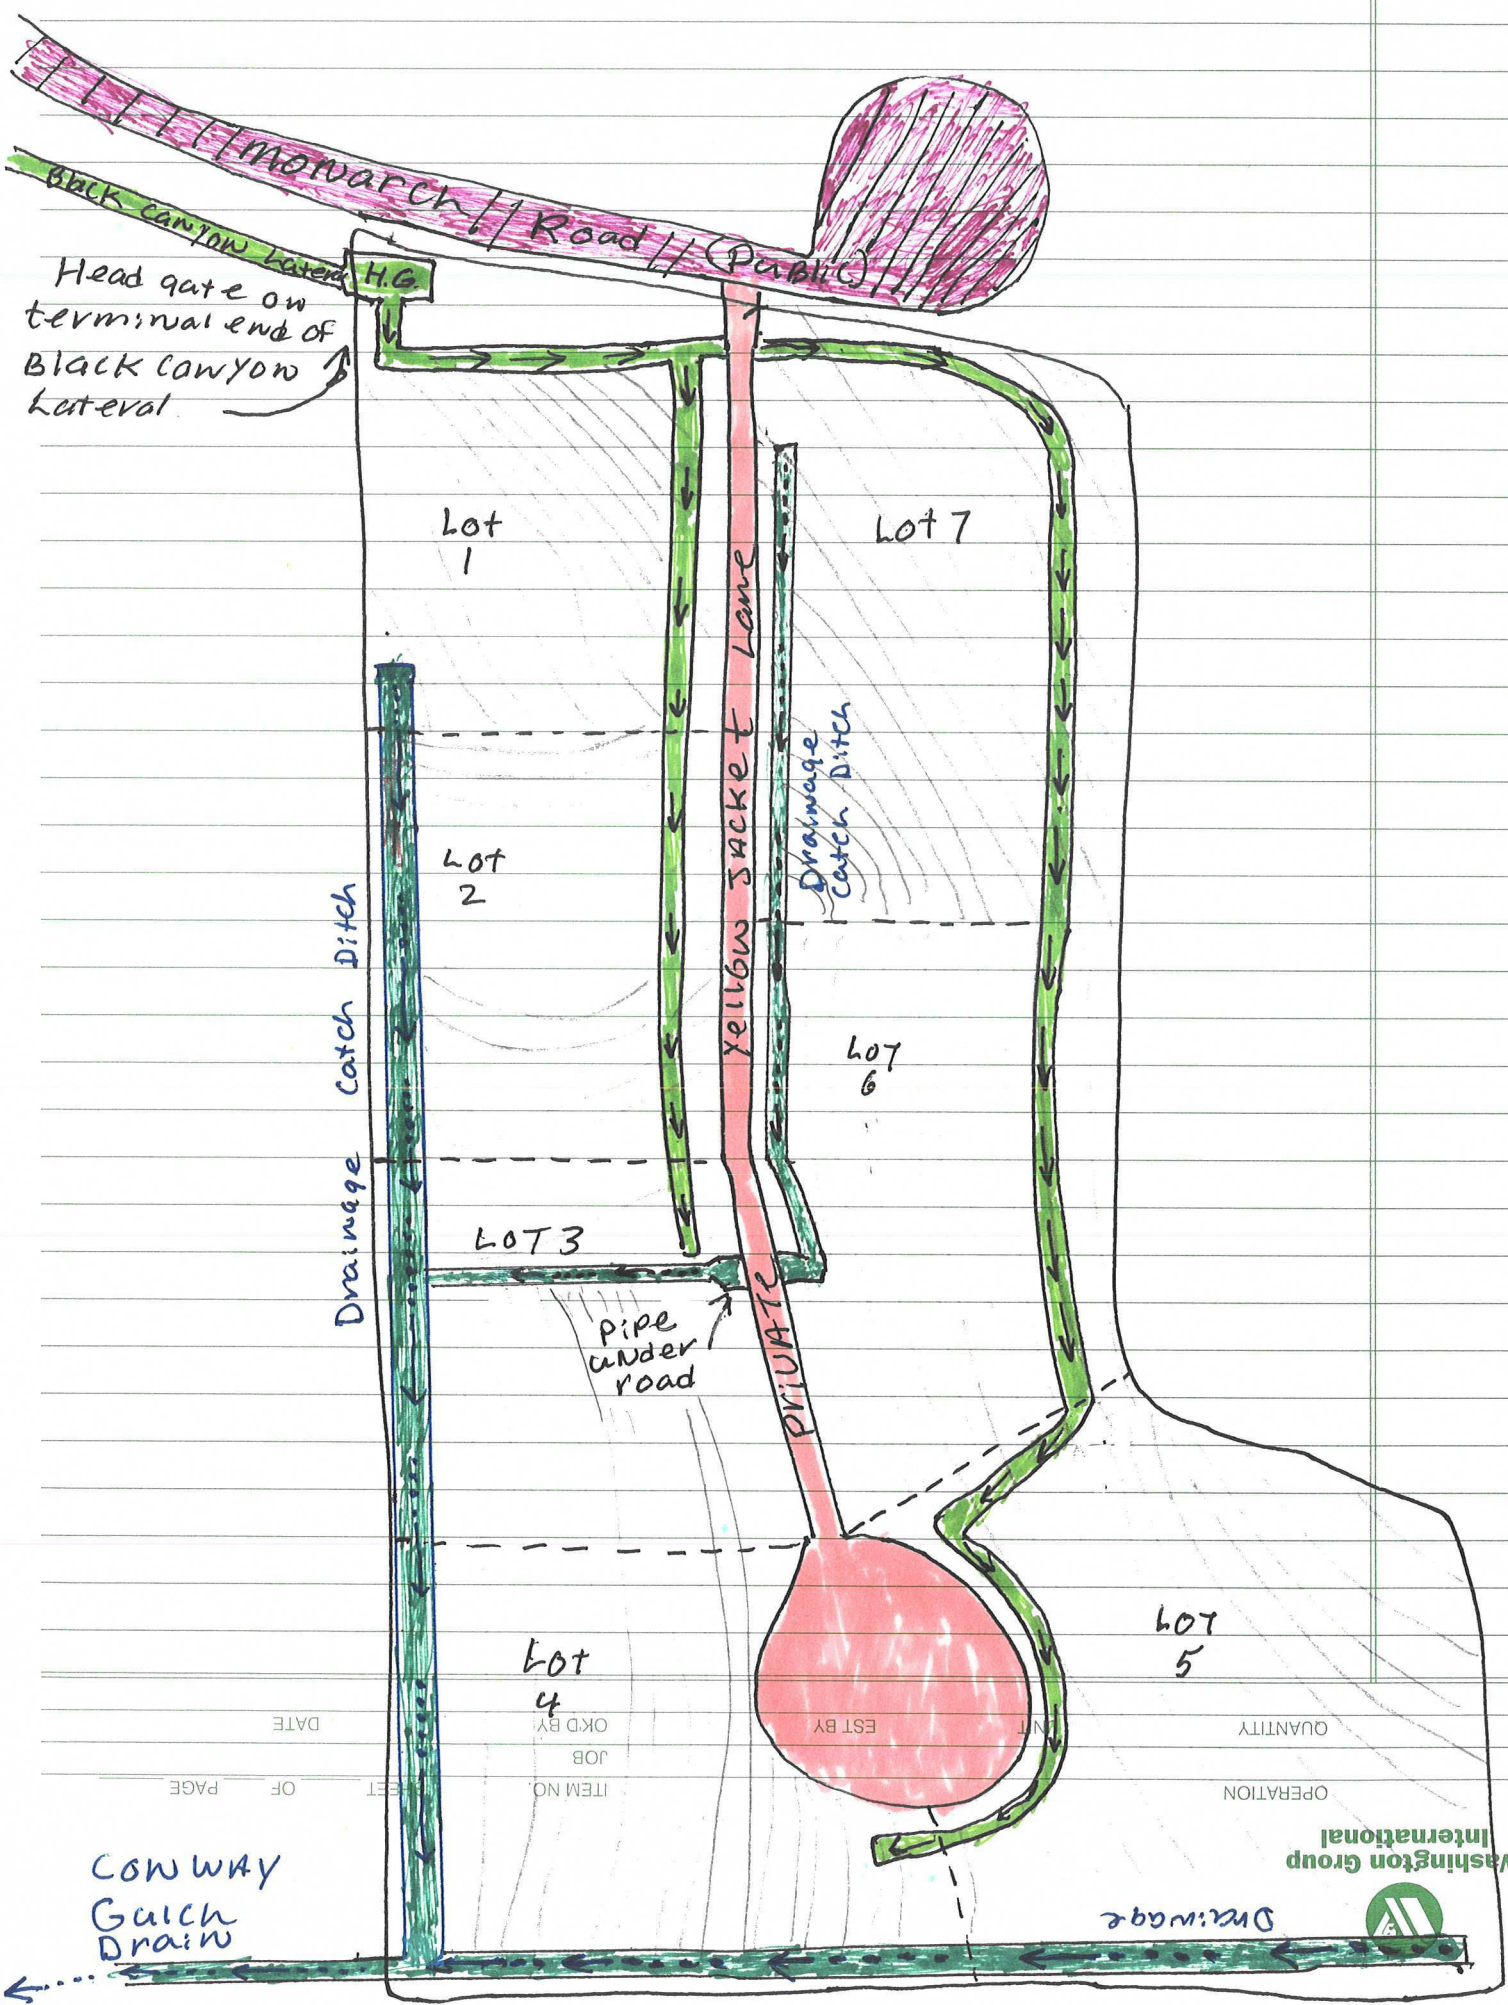 Monarch Road (Public)
Black Canyon Lateral
H.G.
Head gate on
terminal end of
Black Canyon
Lateral
Lot
1
Lot 7
Yellow Jacket Lane
Drainage
Catch Ditch
Lot
2
Drainage Catch Ditch
Lot
6
LOT 3
Pipe
under
road
PRIVATE
Lot
5
Lot
4
DATE
OK'D BY
EST BY
QUANTITY
JOB
SHEET OF PAGE
ITEM NO.
OPERATION
Washington Group
International
CONWAY
Gulch
Drain
Drainage